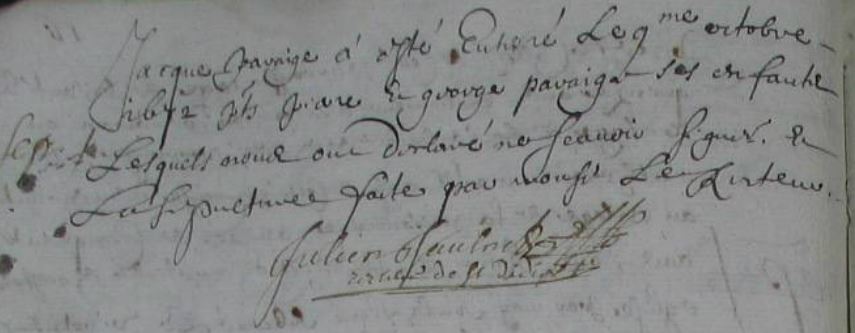 Jacque pavaige á esté Enteré Le 9me octobre
pñs piare Et george pavaige ses enfants
Lesquels nous ont declaré ne scauoir signer. Et
La sepulture faite par mousr Le Recteur.
Julien
recteur de St